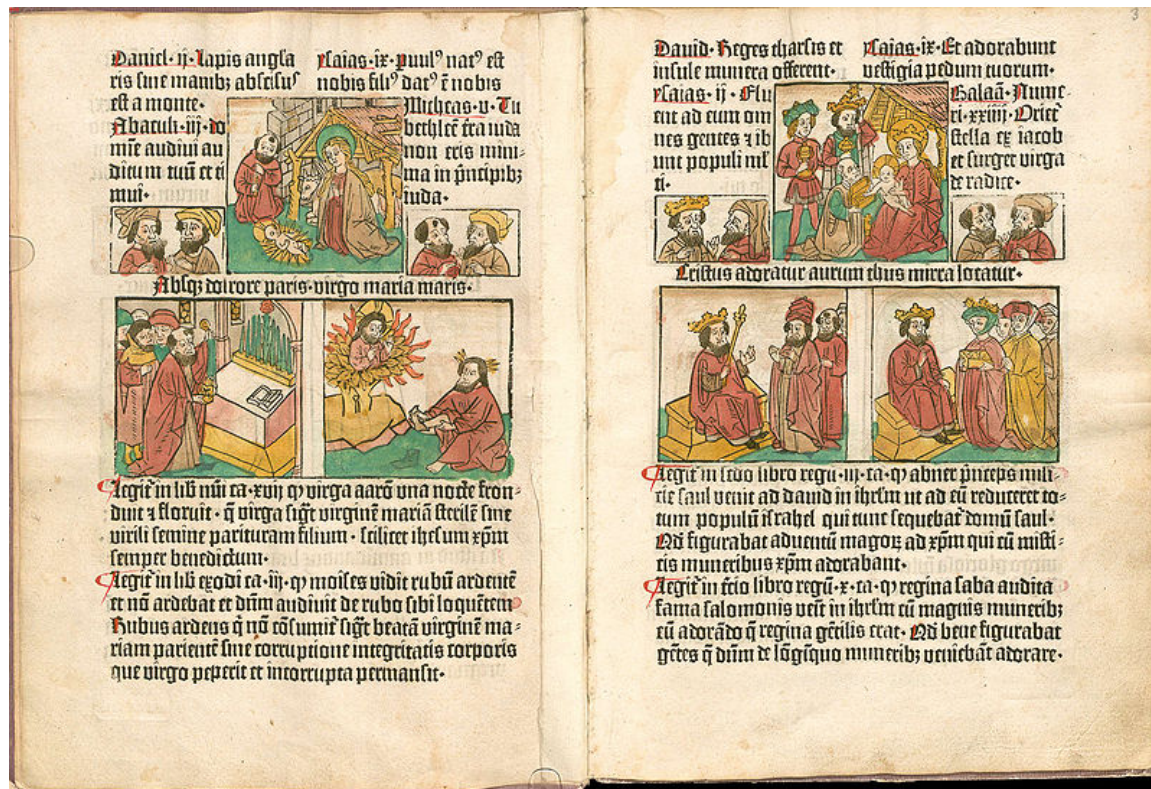 Daniel·ij·Lapis angła
ris sine manibꝫ abscisusꝰ
est a monte·
Abacuk·iij·do
mīe audiui au
ditum tuū et ti
mui·
Ysaias·ix·puulꝰ natꝰ est
nobis filiꝰ datꝰ ē nobis
Micheas·v·Tu
bethleē tra iuda
non eris mini
ma in prīcipibꝫ
iuda·
Absqꝫ dolrore paris·virgo maria maris·
Legit̄ in lib nūi ca·xvij ꝙ virga aarō vna nocte fron⸗
duit ⁊ floruit· q̄ virga sigt̄ virginē mariā sterilē sine
virili semine parituram filium· scilicet ihesum xp̄m
semper benedictum·
Legit̄ in lib exodi ca·iij·ꝙ moises vidit rubū ardentē
et nō ardebat et dn̄m audiuit de rubo sibi loquētem
Rubus ardens q̄ nō cōsumit̄ sigt̄ beatā virginē ma⸗
riam parientē sine corruptione integritatis corporis
que virgo peperit et incorrupta permansit·
3
Dauid·Reges tharsis et
insule munera offerent·
Ysaias·ij·Flu
ent ad eum om
nes gentes ⁊ ib
unt populi ml̄
ti·
Ysaias·ix·Et adorabunt
vestigia pedum tuorum·
Balaā·Nume⸗
ri·xxiiij·Oriet̄
stella ex iacob
et surget virga
de radice·
Cristus adoratur aurum thus mirea locatur·
Legit̄ in scdo libro regū·iij·ca·ꝙ abner prīceps mili⸗
cie saul venit ad dauid in ihrlm ut ad eū reduceret to⸗
tum populū israhel qui tunc sequebat̄ domū saul·
Qd̄ figurabat aduentū magoꝝ ad xp̄m qui eū misti⸗
cis muneribus xp̄m adorabant·
Legit̄ in tc̄io libro regū·x·ca·ꝙ regina saba audita
fama salomonis veīt in ihrlm cū magnis muneribꝫ
eū adorādo q̄ regina gētilis erat· Qd̄ bene figurabat
gētes q̄ dn̄m de lōgīquo muneribꝫ veniebāt adorare·